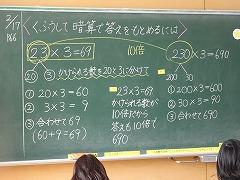 2/17
P.66
くふうして暗算で答えをもとめるには
23×3=69
10倍
230×3=690
20 3
かけられる数を20と3に分けて
200 30
① 20×3=60
② 3×3=9
③ 合わせて69
(60+9=69)
23×3=69
かけられる数が
10倍だから
答えも10倍で
690
① 200×3=600
② 30×3=90
③ 合わせて690